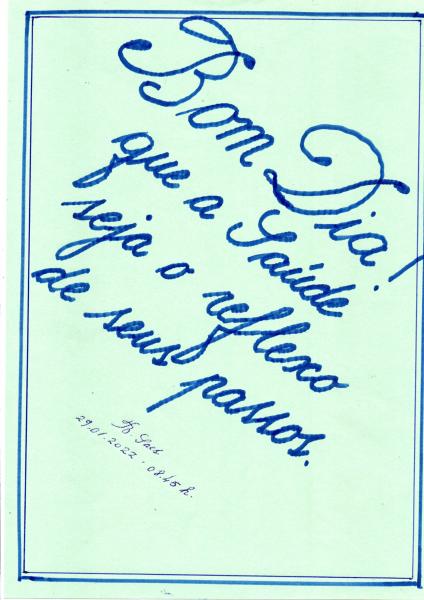 Bom Dia!
que a Saúde
seja o reflexo
de seus passos.
29.01.2022. 08:45 h.